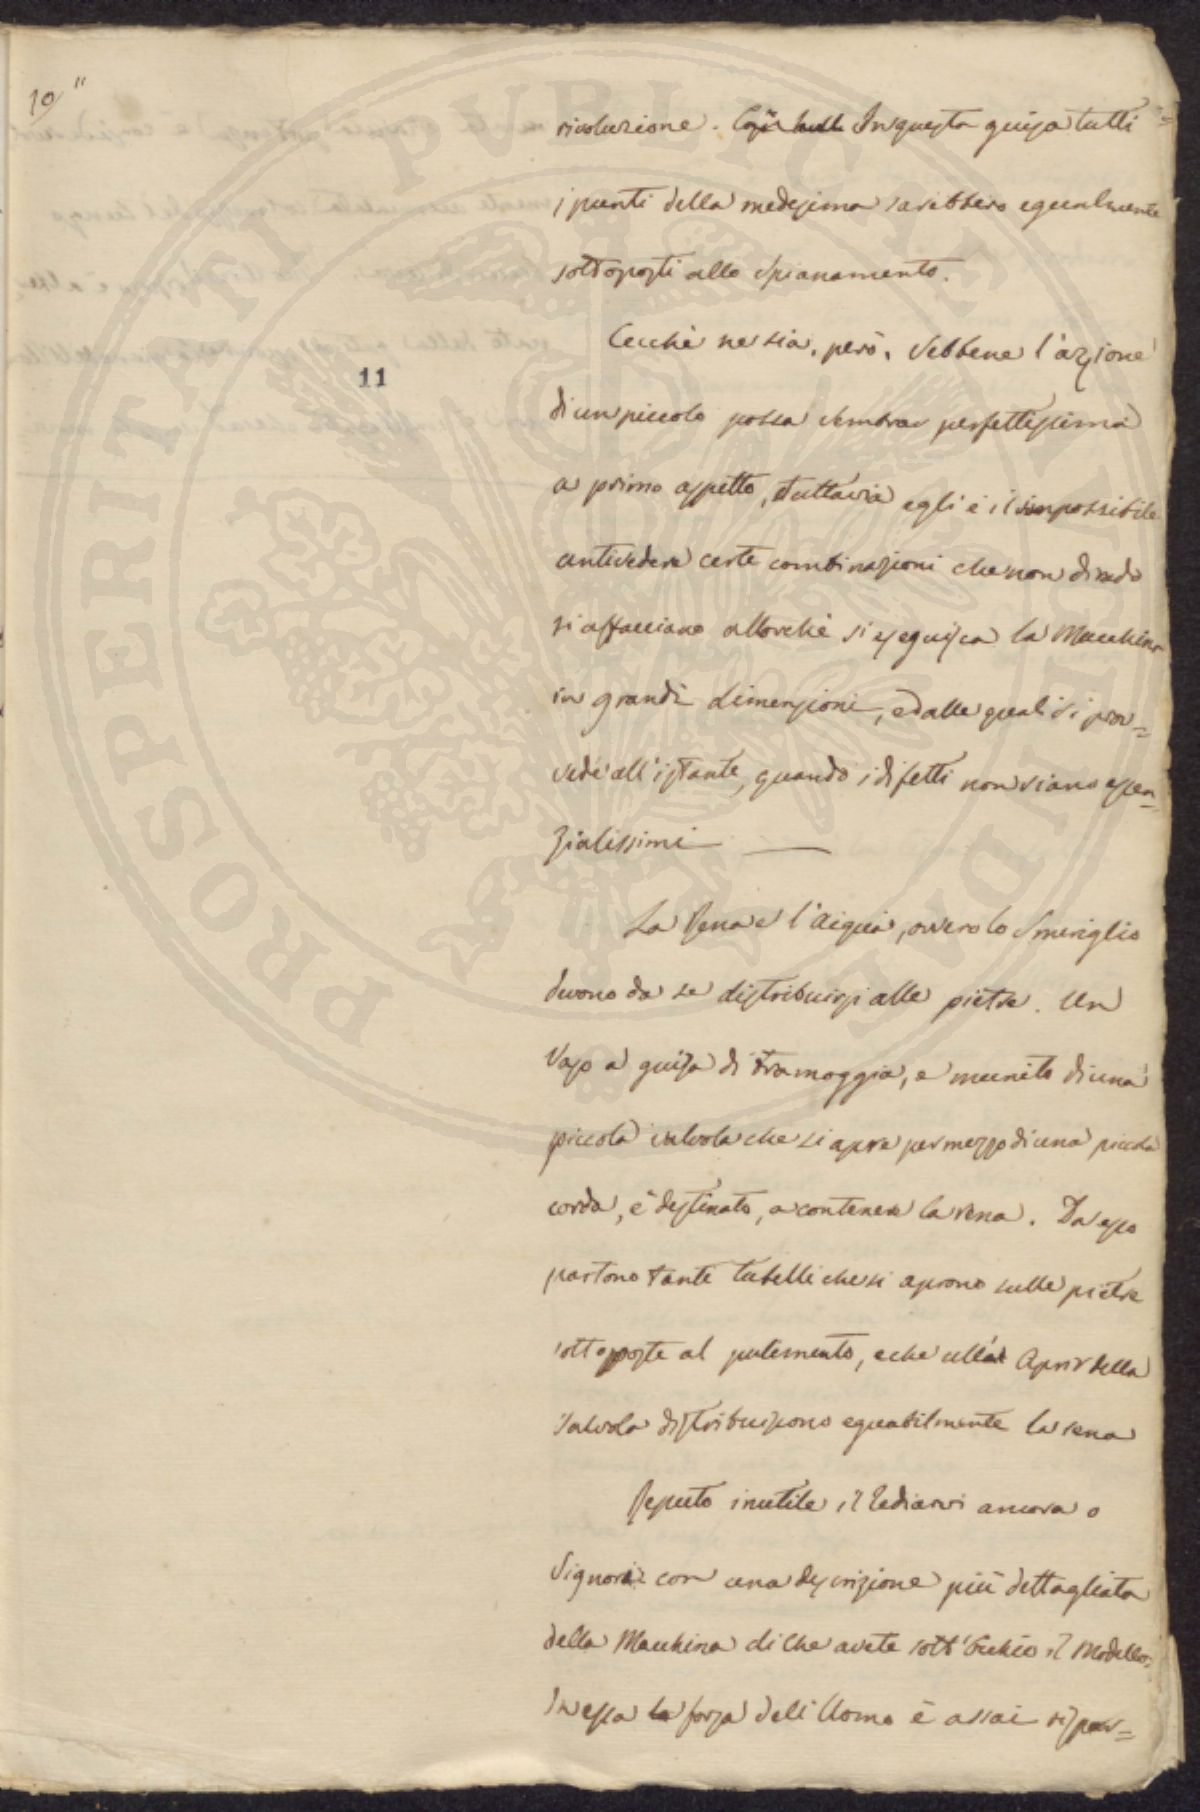 10"
11
rivoluzione. Così tutti In questa guisa tutti
i punti della medesima sarebbero egualmente
sottoposti allo Spianamento.
Cecchè ne sia, però, Sebbene l'azione
di un piccolo possa sembrar perfettissima
a primo aspetto, tuttavia egli è impossibile
antivedere certe combinazioni che non di rado
si affacciano allorchè si eseguisca la Macchina
in grandi dimensioni, ed alle quali si prov=
vede all'istante, quando i difetti non siano essen=
zialissimi
La Rena e l'Acqua, ovvero lo Smeriglio
devono da se distribuirsi alle pietre. Un
Vaso a guisa di tramoggia, e munito di una
piccola valvola che si apre per mezzo di una piccola
corda, è destinato, a contenere la rena. Da esso
partono tante tubelli che si aprono sulle pietre
sottoposte al pulimento, e che all' Aprir della
Valvola distribuiscono equabilmente la rena
Reputo inutile il tediarvi ancora o
Signori con una descrizione più dettagliata
della Macchina di che avete sott'occhio il Modello.
In essa la forza dell'Uomo è assai rispar=
PROSPERITATI PVBLICAE